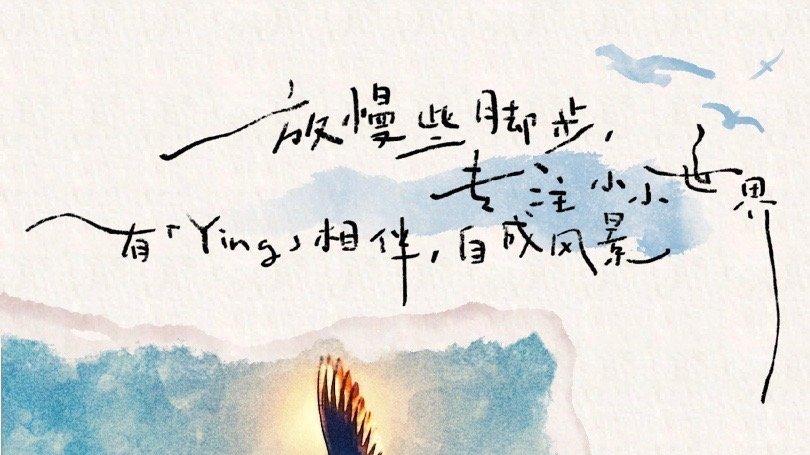 放慢些脚步，
专注小小世界
有「Ying」相伴，自成风景